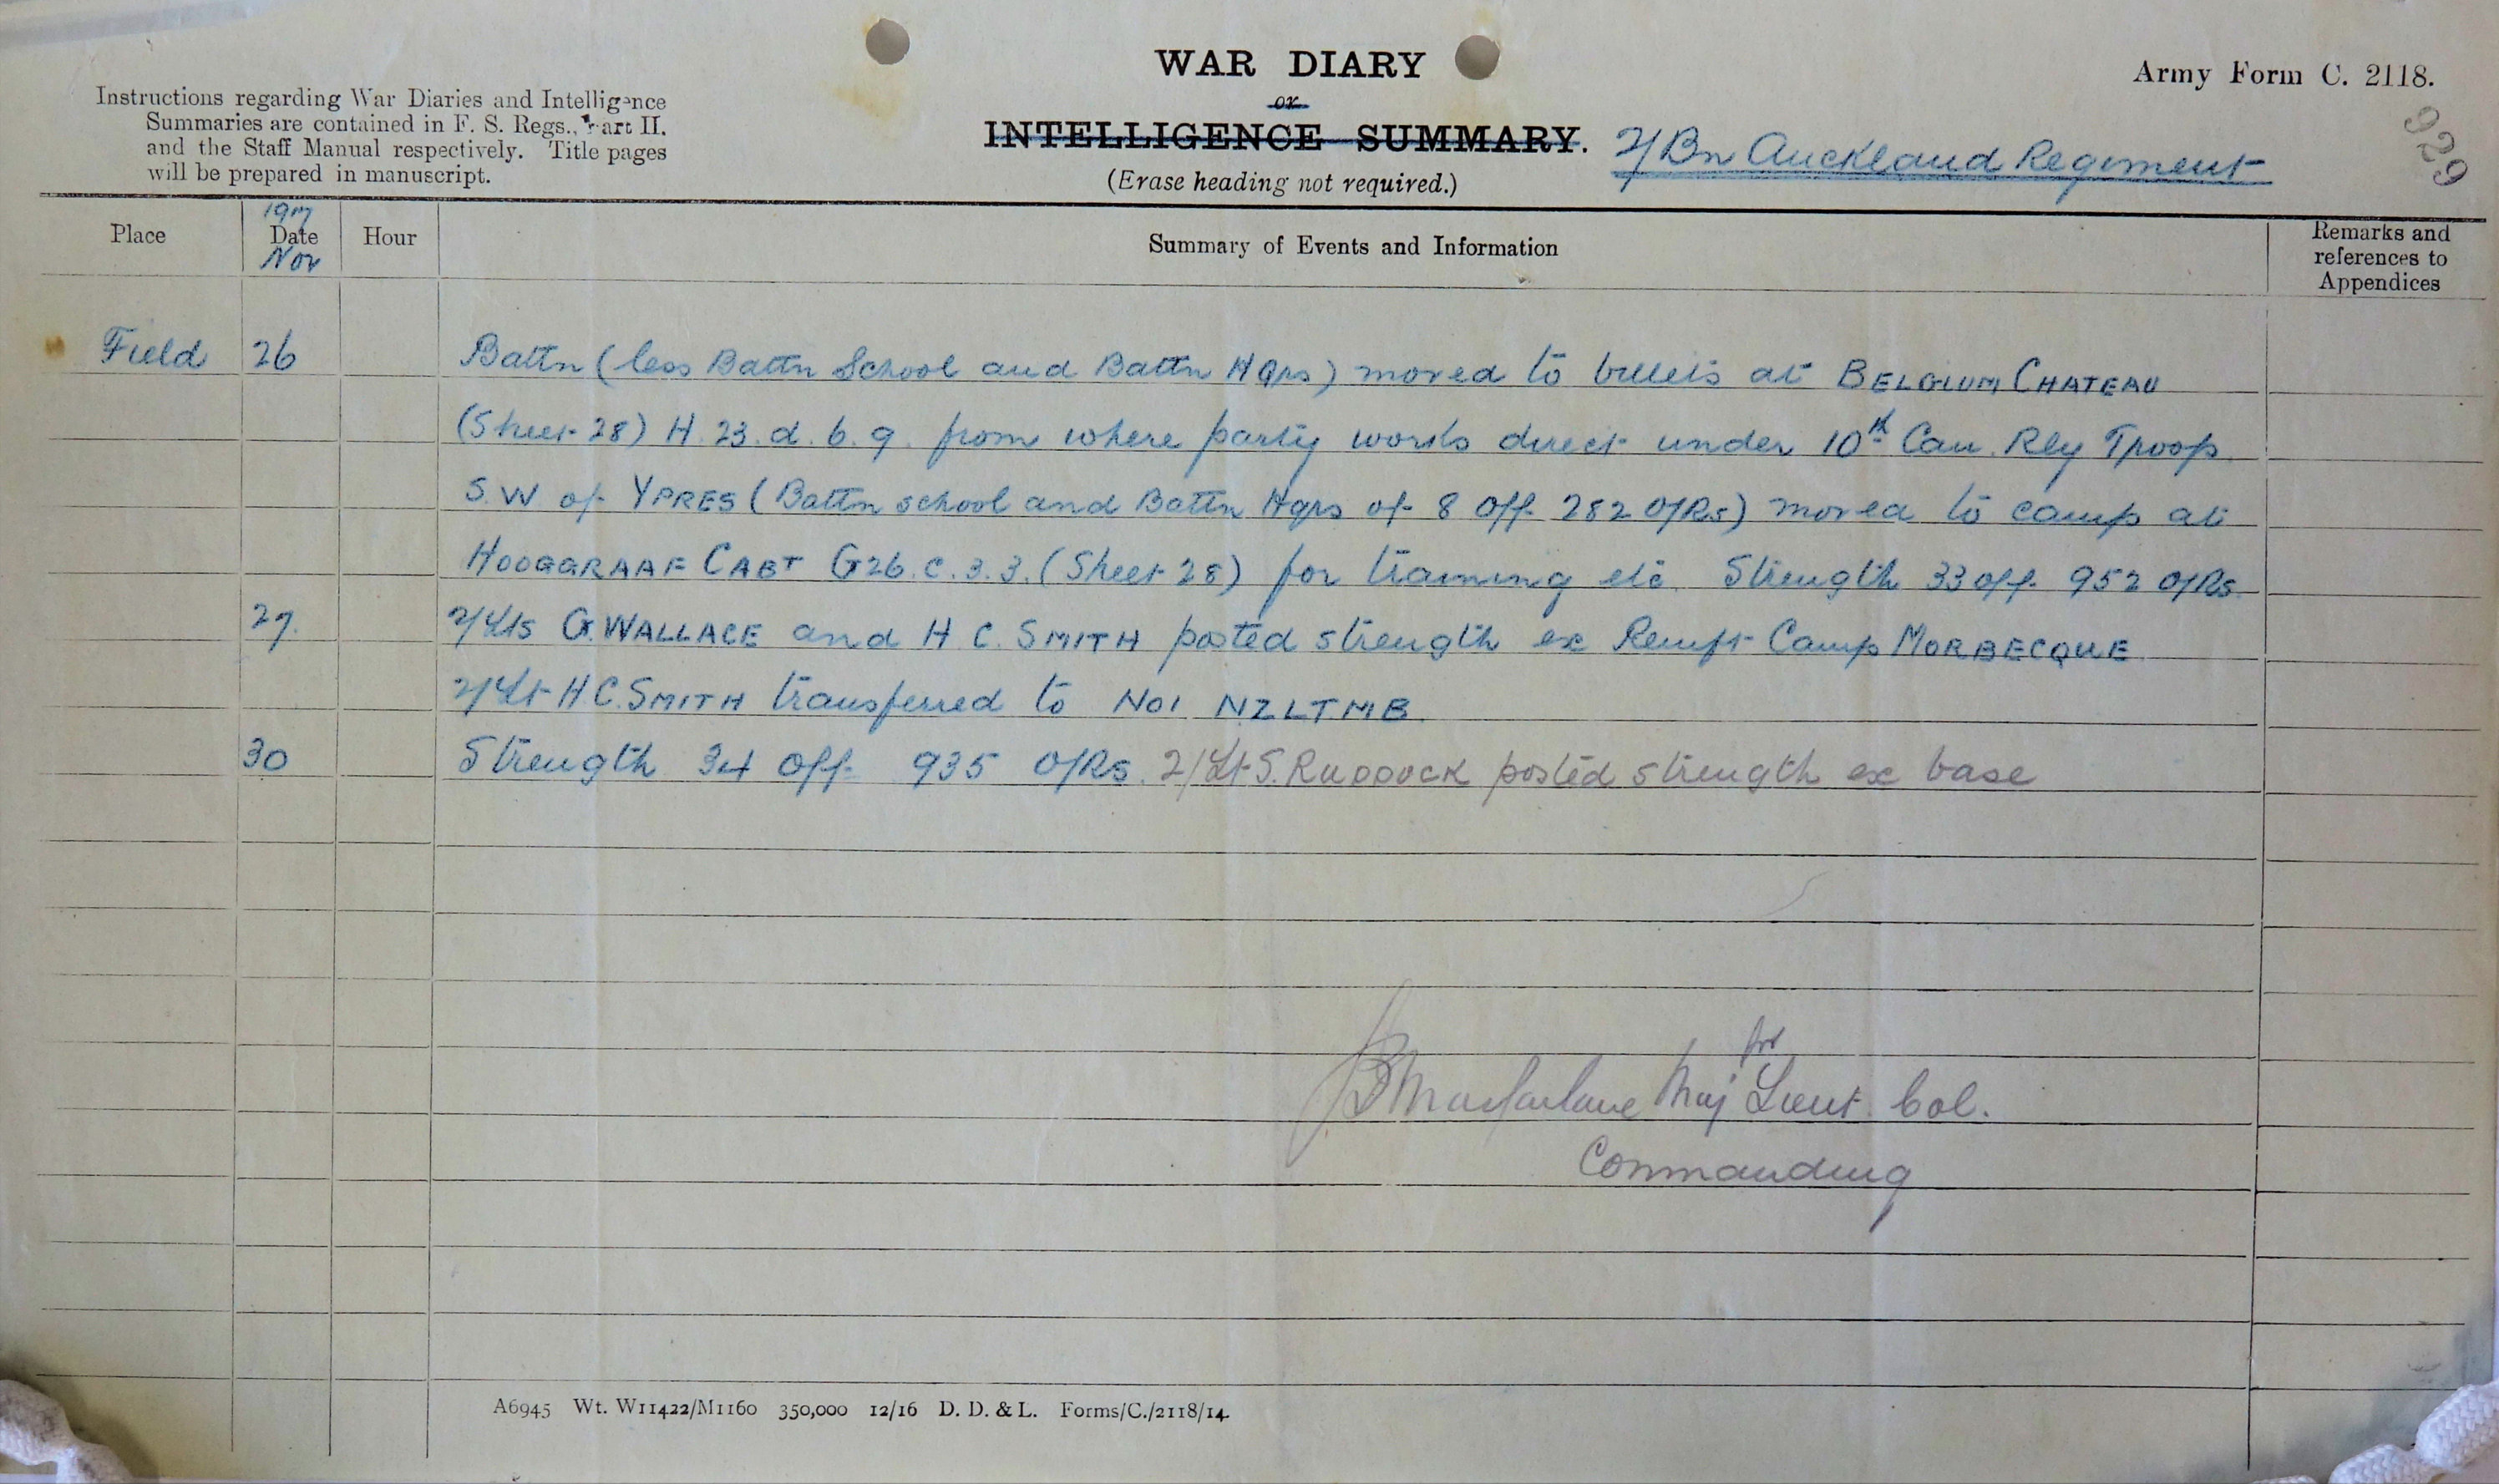 WAR DIARY
or
INTELLIGENCE SUMMARY.
(Erase heading not required.)
Instructions regarding War Diaries and Intelligence
Summaries are contained in F. S. Regs., Part II.
and the Staff Manual respectively. Title pages
will be prepared in manuscript.
Army Form C. 2118.
929
2/Bn Auckland Regiment
Place
1917
Date
Nov
Hour
Summary of Events and Information
Remarks and
references to
Appendices
Field 26 Battn (less Battn School and Battn HQrs) moved to billets at BELGIUM CHATEAU
(Sheet 28) H. 23. d. 6. 9. from where party works direct under 10th Can. Rly Troops
S.W of YPRES (Battn school and Battn Hqrs of 8 Off 282 O/Rs) moved to camp at
HOOGGRAAF CABT G26. c. 3. 3. (Sheet 28) for training etc. Strength 33 off. 952 O/Rs.
27. 2/Lts G. WALLACE and H. C. SMITH posted strength ex Reinft Camp MORBECQUE
2/Lt H C. SMITH transferred to No1 NZLTMB.
30 Strength 34 Off 935 O/Rs. 2/Lt S. RUDDOCK posted strength ex base
for
Macfarlane Maj Lieut. Col.
Commanding
A6945 Wt. W11422/M1160 350,000 12/16 D. D. & L. Forms/C./2118/14.